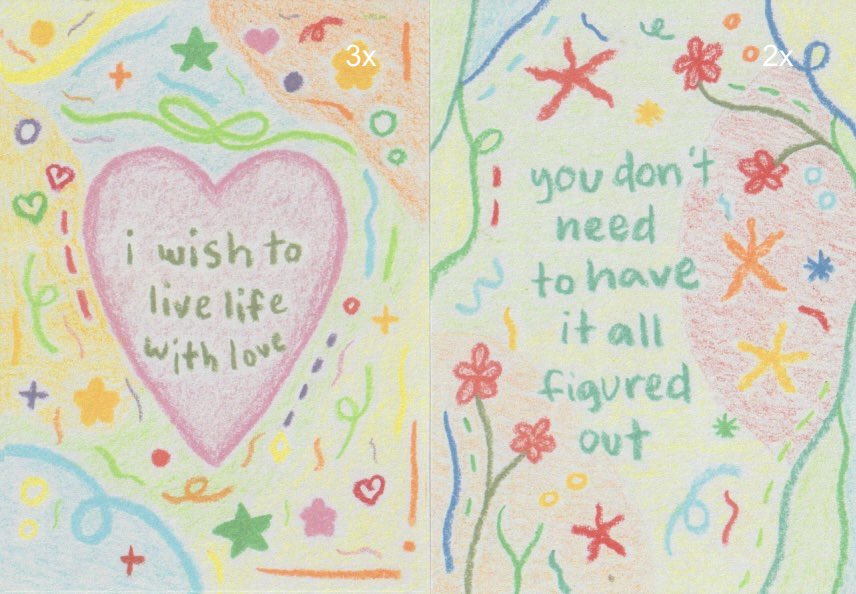 3x
i wish to
live life
with love
2x
you don't
need
to have
it all
figured
out